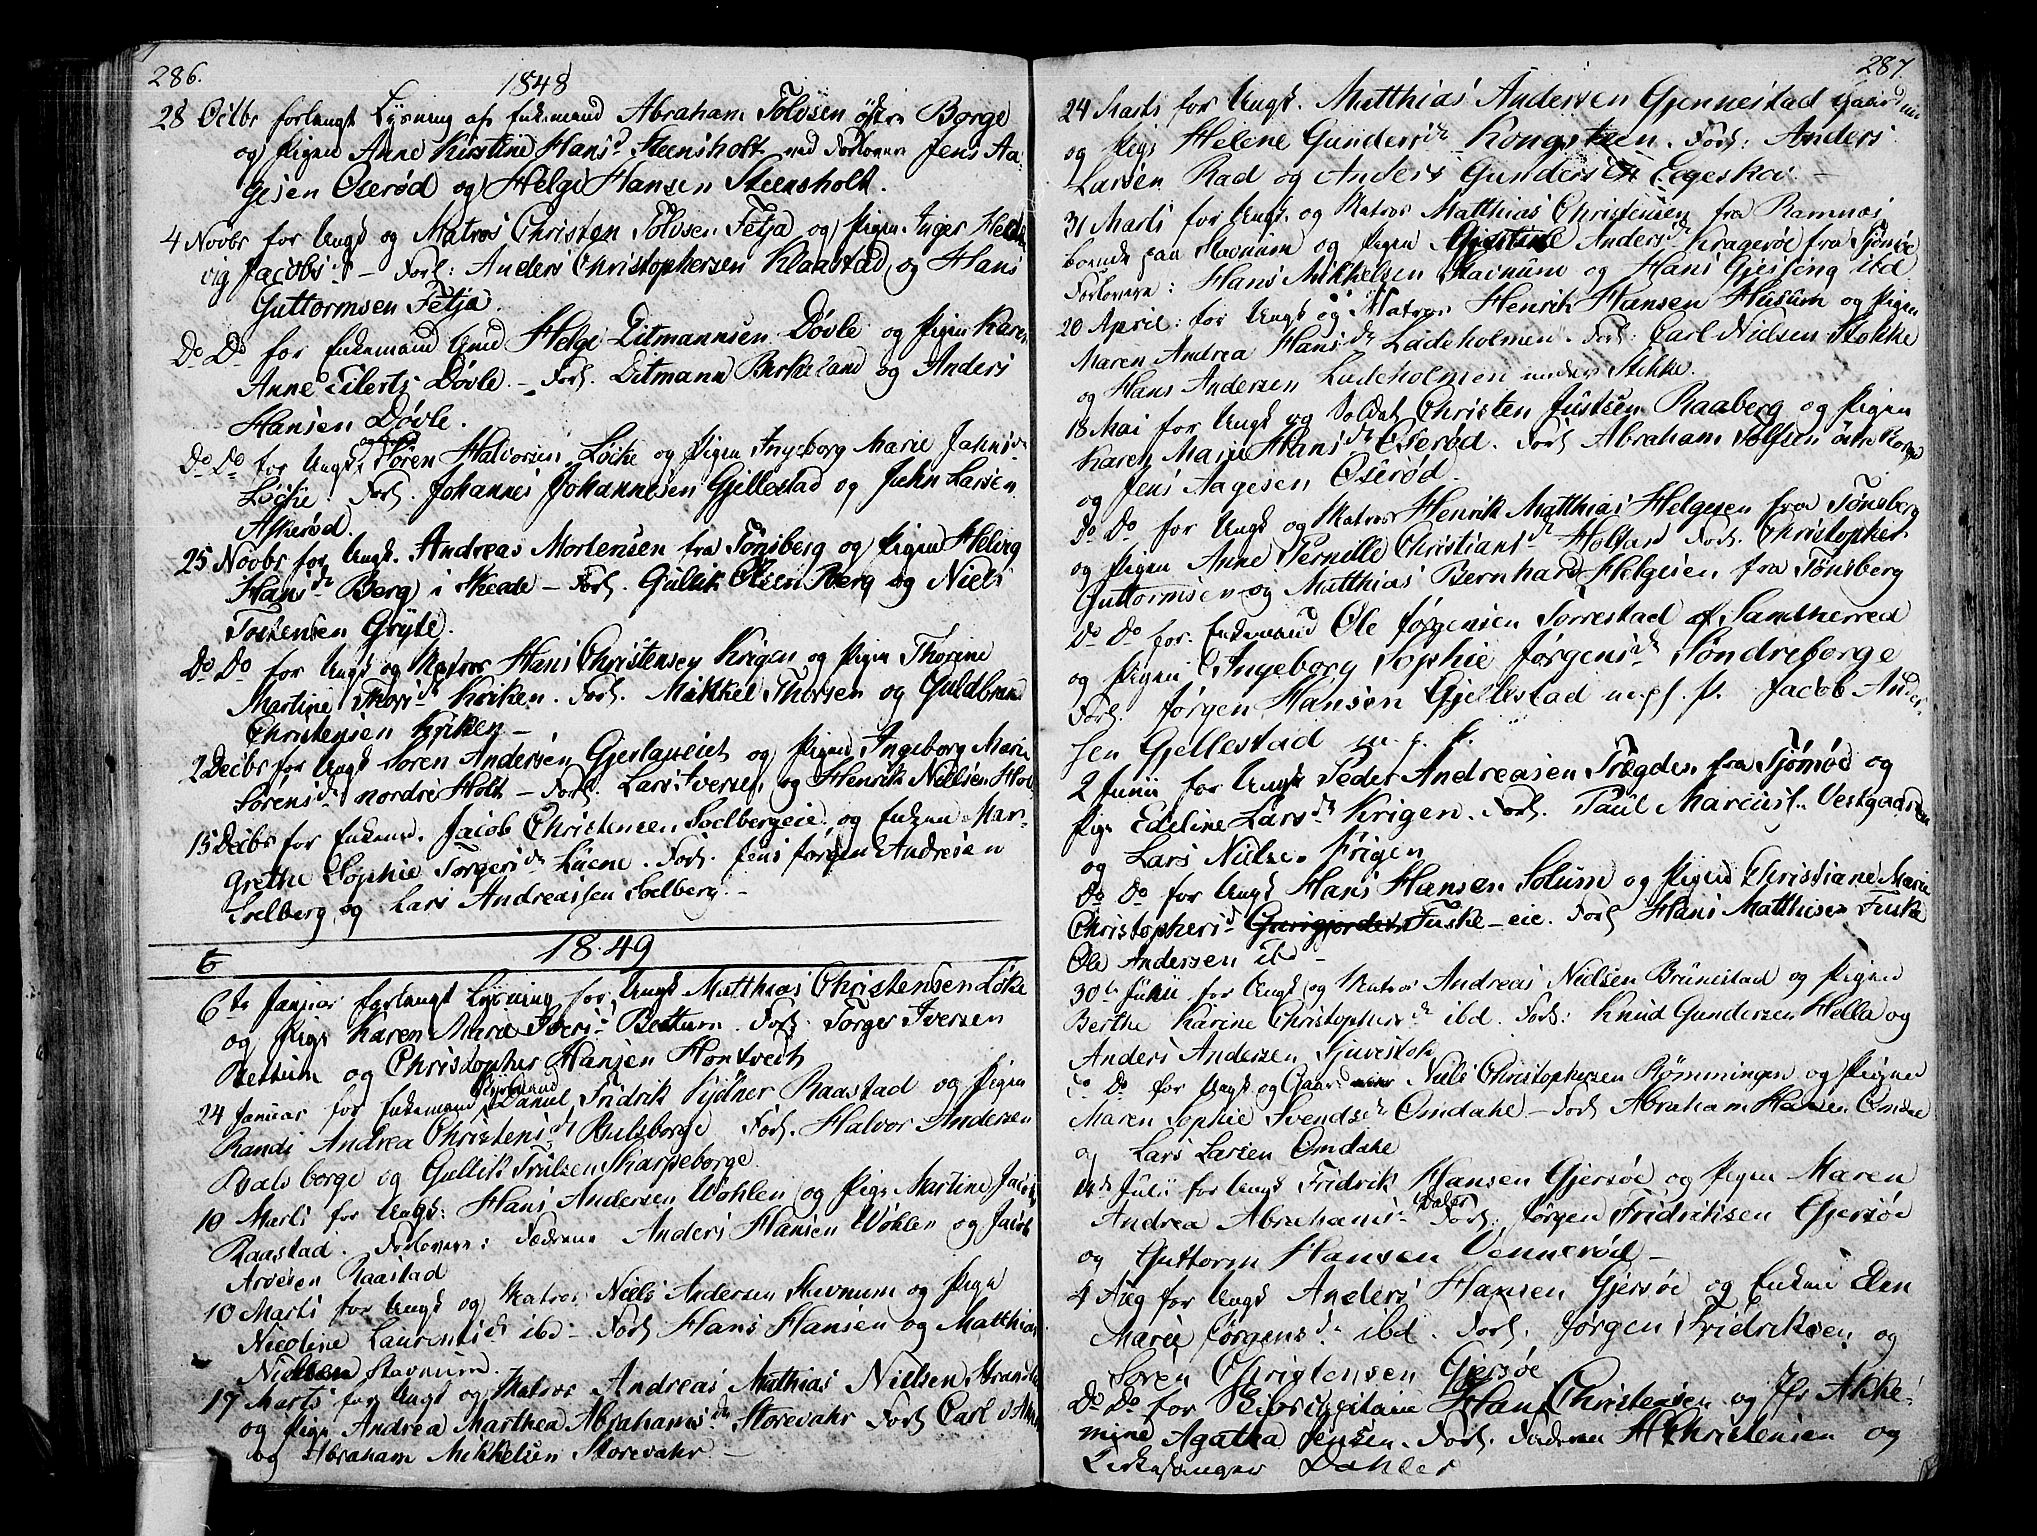 286.
1848
28 Octbr forlangt Lysning af Enkemand Abraham Tolvsen østre Borge
og Pigen Anne Kirstine Hansd. Steensholt ved Forlovere Jens Aa-
gesen Oserød og Helge Hansen Steensholt.
4 Novbr for Ungk og Matros Christen Tolvsen Fetja og Pigen Inger Hed-
vig Jacobsd. – Forl: Anders Christophersen Klaastad og Hans
Guttormsen Fetja.
Do Do for Enkemand Helge Ditmannsen Døvle og Pigen Karen
Anne Eilerts Døvle. – Forl. Ditmann Berkeland og Anders
Hansen Døvle.
Do Do for Ungk Søren Halvorsen Løcke og Pigen Ingeborg Marie Jahnsd
Løcke. Forl. Johannes Johannesen Gjellestad og Jahn Larsen
Askerød.
25 Novbr for Ungk. Andreas Mortensen fra Tønsberg og Pigen Helvig
Hansd. Berg i Skeade – Forl. Gullik Olsen Berg og Niels
Tostensen Gryte.
Do Do for Ungk og Matros Hans Christensen Krigen og Pigen Thorine
Martine Thorsd. Kriken. Forl. Mikkel Thorsen og Guldbrand
Christensen Kriken –
2 Decbr for Ungk Søren Andersen Gjerlaueiet og Pigen Ingeborg Marie
Sørensd. nordre Holt – Forl. Lars Iversen og Henrik Nielsen Holt
15 Decbr for Enkemd. Jacob Christensen Soelbergeie og Enken Mar-
grethe Sophie Torgersd. Lüene. Forl. Jens Jørgen Andresen
Soelberg og Lars Andreassen Soelberg. –
1849
6te Januar forlangt Lysning for Ungk Matthias Christensen Løke
og Pige Karen Marie Iversd. Bettum. Forl. Torger Iversen
Bettum og Christopher Hansen Hontvedt
24 Januar for Enkemand Daniel Fridrik Sydner Raastad og Pigen
Randi Andrea Christensd. Bulsborge Forl. Halvor Andersen
Bulsborge og Gullik Trulsen Skarpeborge.
10 Marti for Ungk: Hans Andersen Wøhlen og Pige Martine Jacobsd
Raastad. Forlovere: Fædrene Anders Hansen Wøhlen og Jacob
Arvesen Raastad
10 Marti for Ungk og Matros Niels Andersen Stavnum og Pige
Nicoline Laurentsd. ibd – Forl Hans Hansen og Matthias
Nielsen Stavnum.
17 Marti for Ungk og Matros Andreas Matthias Nielsen
og Pigen Andrea Marthea Abrahamsd. Storevahr Forl Carl
og Abraham Mikkelsen Storevahr –
287
24 Marts for Ungk. Matthias Andersen Gjennestad Gaardmd
og Pige Helene Gundersd. Kongsteen. Forl: Anders
Larsen Rad og Anders Gundersen Eegeskov –
31 Marti for Ungk og Matros Matthias Christensen fra Ramnæs
boende paa Stavnum og Pigen Andersd. Kragerøe fra Tjömöe
Forlovere: Hans Mikkelsen Stavnum og Hans Gjessing ibd
20 April: for Ungk og Matros Henrik Hansen Husum og Pigen
Maren Andrea Hansd. Ladeholmen. Forl: Carl Nielsen Stokke
og Hans Andersen Ladeholmen under Stokke.
18 Mai for Ungk og Soldat Christen Justsen Raaberg og Pigen
Karen Marie Hansd. Oserød. Forl Abraham Tolfsen östre Borge
og Jens Aagesen Oserød.
Do Do for Ungk og Matros Henrik Matthias Helgesen fra Tønsberg
og Pigen Anne Pernille Christiansd. Holtan Forl. Christopher
Guttormsen og Matthias Bernhard Helgesen fra Tønsberg
Do Do for. Enkemand Ole Jørgensen Sorrestad af Sandherred
og Pigen Ingeborg Sophie Jørgensd. Søndreborge
Forl. Jørgen Hansen Gjellestad m. p. f. P. Jacob Ander-
sen Gjellestad m. p. f.
2 Junii for Ungk Peder Andreasen Trægden fra Tjömöe og
Pige Edeline Larsd. Krigen. Forl. Paul Marcus. Vestgaarden
og Lars Nielsen Krigen
Do Do for Ungk Hans Hansen Solum og Pigen Christiane Marie
Christophersd. Fuske-eie. Forl Hans Matthisen Fuske
Ole Andersen ibd –
30te Juni for Ungk og Matros Andreas Nielsen Brunestad og Pigen
Berthe Karine Christophersd. ibd. Forl: Knud Gundersen Hella og
Anders Andersen Sjuvestok
Do Do for Ungk og Gaardmand Niels Christophersen Rømmingen og Pigen
Maren Sophie Svendsd. Omdahl – Forl Abraham Hansen Omdal
og Lars Larsen Omdahl
14de Julii for Ungk Fridrik Hansen Gjersøe og Pigen Maren
Andrea Abrahamsd. Dalen Forl: Jørgen Fridriksen Gjersøe
og Guttorm Hansen Vennerød –
4 Aug for Ungk Anders Hansen Gjersøe og Enken Elen
Marie Jørgensd. ibd. Forl. Jørgen Fridriksen og
Søren Christensen Gjersøe
Do Do for Hans Christensen og Jfr Akke-
mine Agatha Jensen. Forl. Faderen H Christensen og
Kirkesanger Dahler